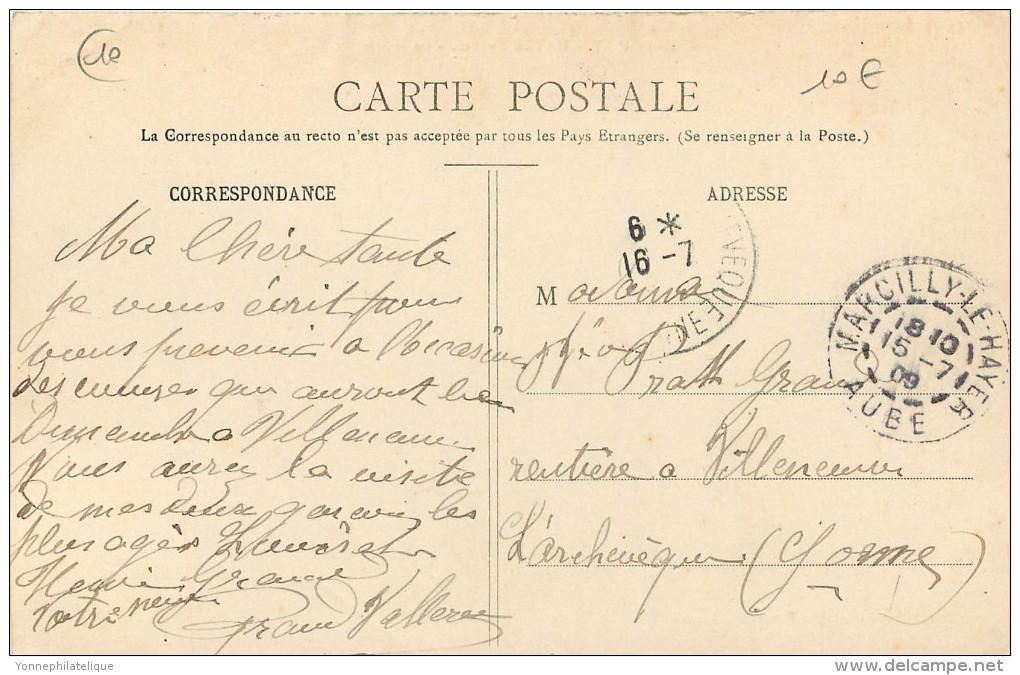 10
10 €
CARTE POSTALE
La Correspondance au recto n'est pas acceptée par tous les Pays Etrangers. (Se renseigner à la Poste.)
CORRESPONDANCE
Ma Chère tante
Je vous écrit pour
vous prevenir a l'occasion
des courses qui auront lieu
Dimanche a Villeneuve
Vous aurez la visite
de mes deux garcons les
plus agés
Henri Grand
votre neveu
Grand
ADRESSE
6 *
16 - 7
Madame
Grand
rentière a Villeneuve
L'archevèque (Yonne)
MARCILLY-LE-HAYER
18 10
15 - 7
09
AUBE
Yonnephilatelique
delcampe.net